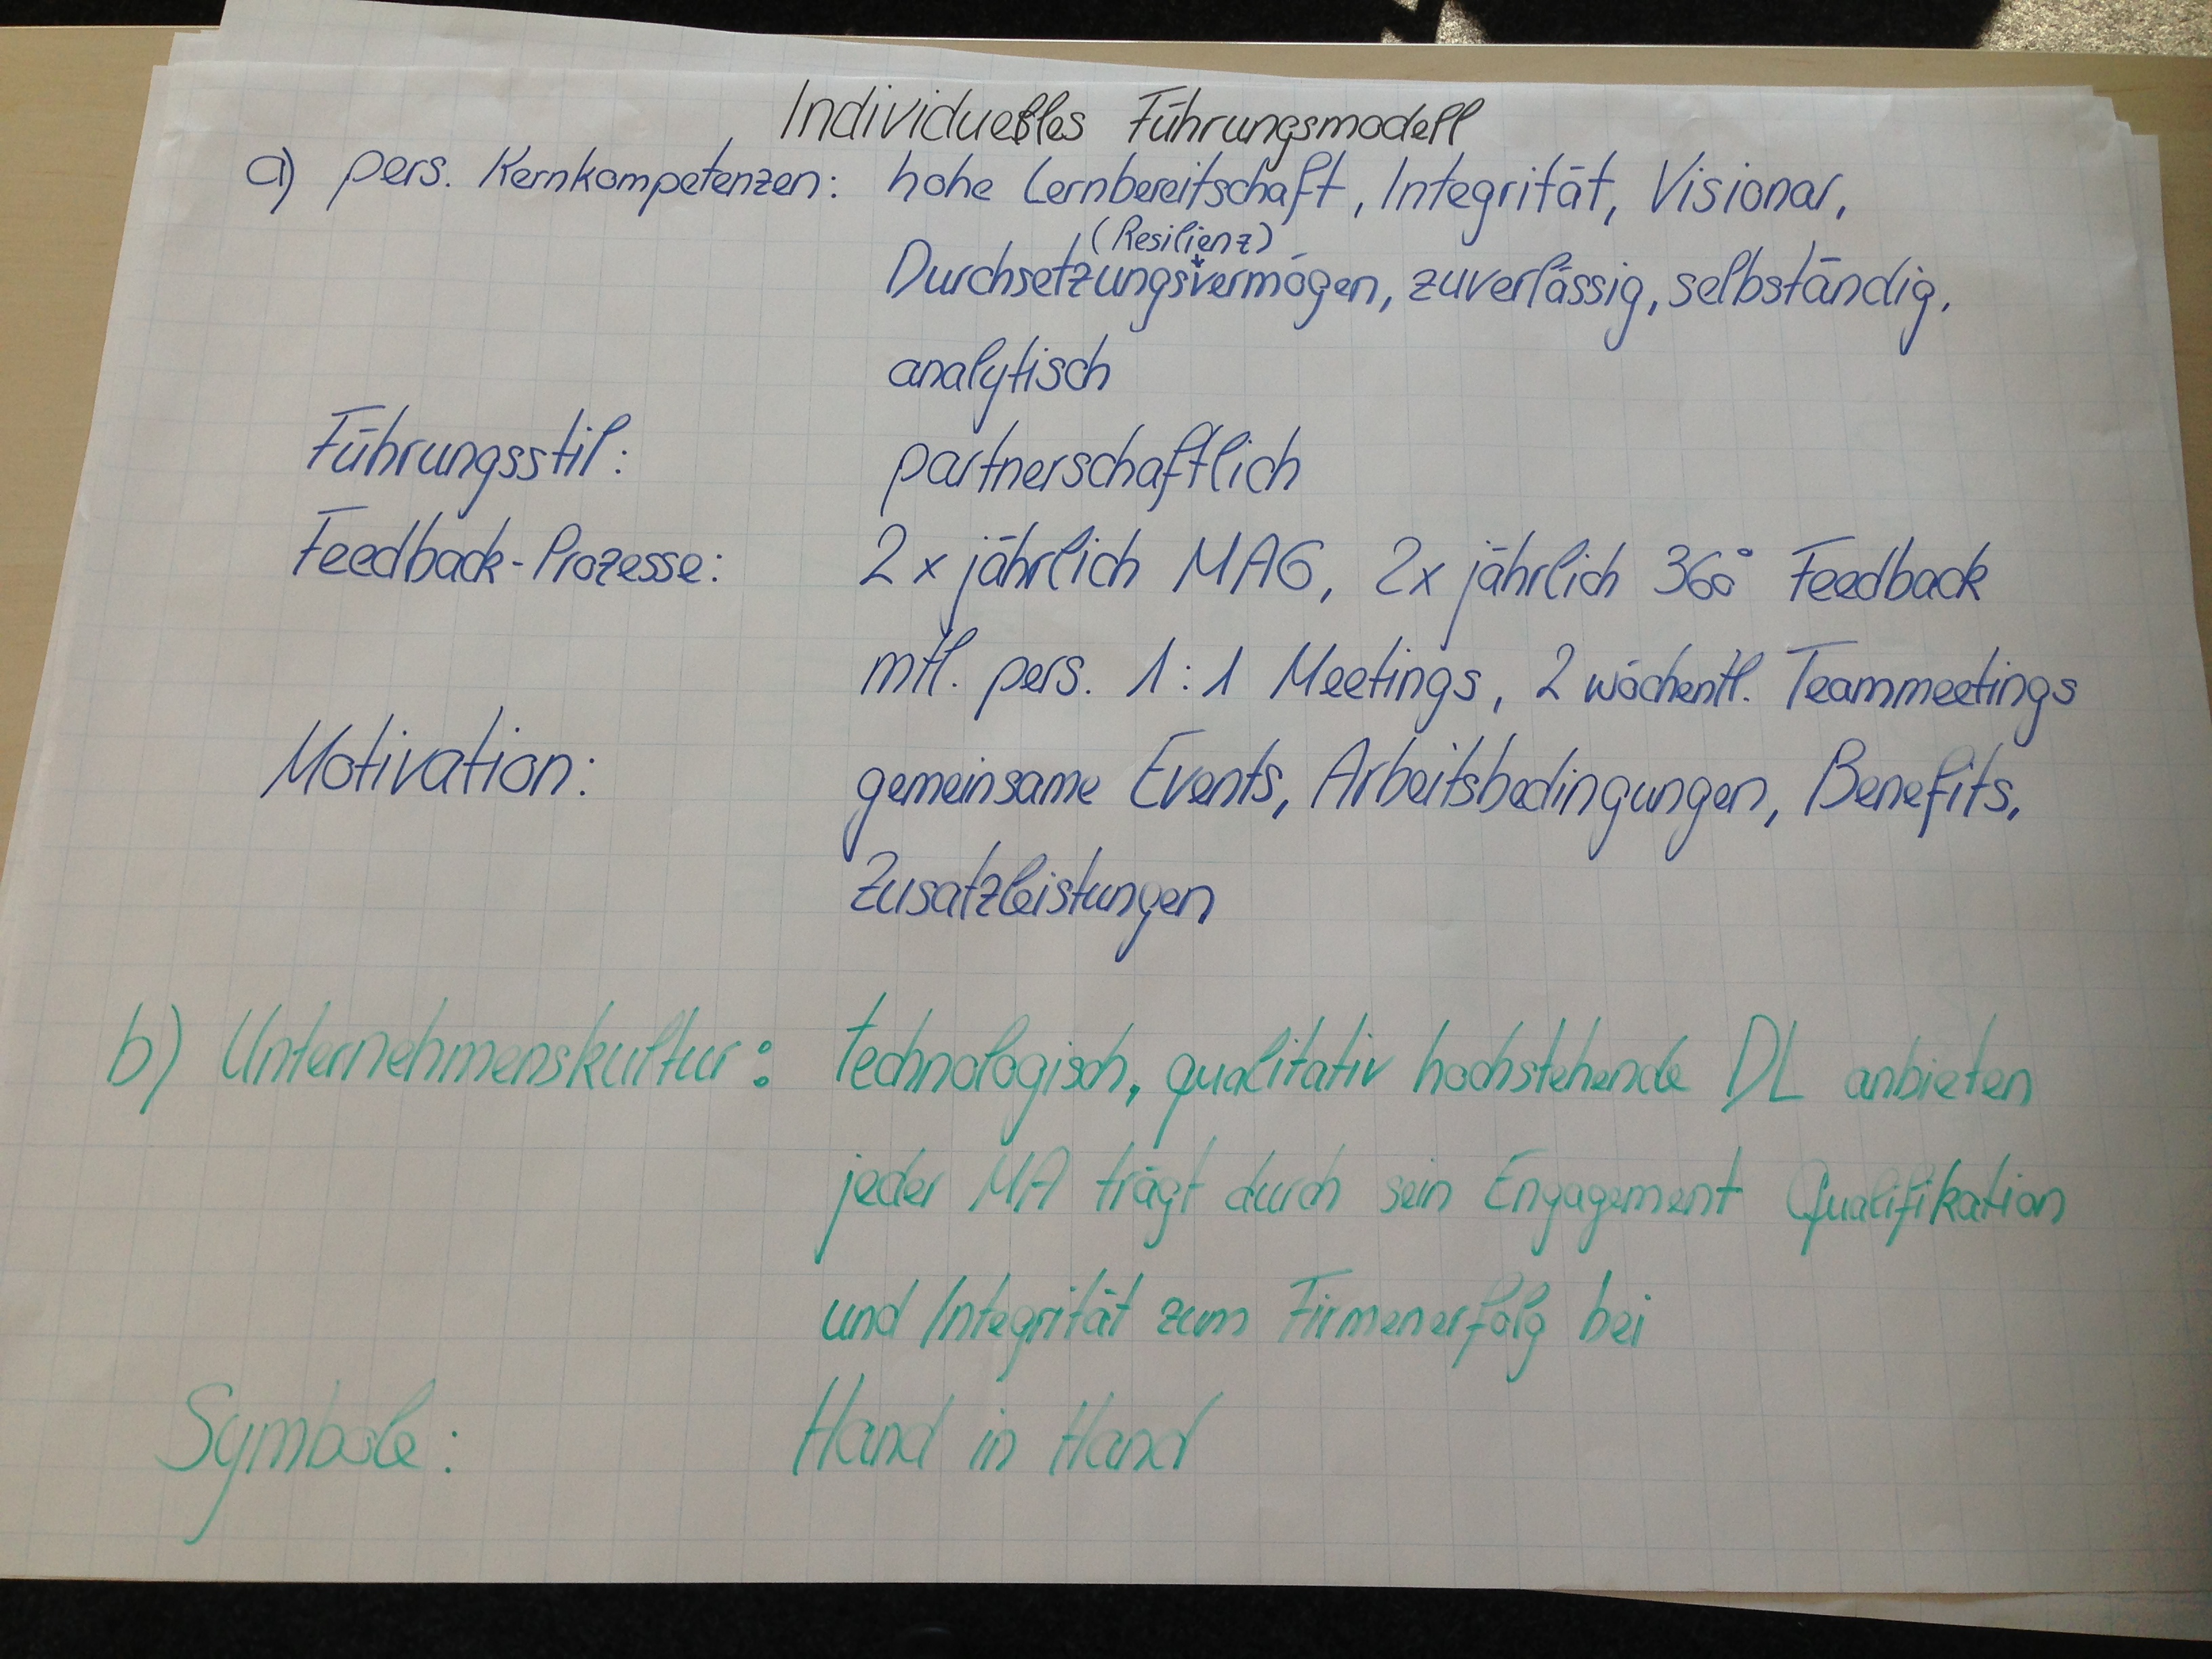 Individuelles Führungsmodell
a) pers. Kernkompetenzen: hohe Lernbereitschaft, Integrität, Visionär,
(Resilienz)
Durchsetzungsvermögen, zuverlässig, selbständig,
analytisch
Führungsstil: partnerschaftlich
Feedback-Prozesse: 2x jährlich MAG, 2x jährlich 360° Feedback
mtl. pers. 1:1 Meetings, 2 wöchentl. Teammeetings
Motivation: gemeinsame Events, Arbeitsbedingungen, Benefits,
Zusatzleistungen
b) Unternehmenskultur: technologisch, qualitativ hochstehende DL anbieten
jeder MA trägt durch sein Engagement Qualifikation
und Integrität zum Firmenerfolg bei
Symbole: Hand in Hand